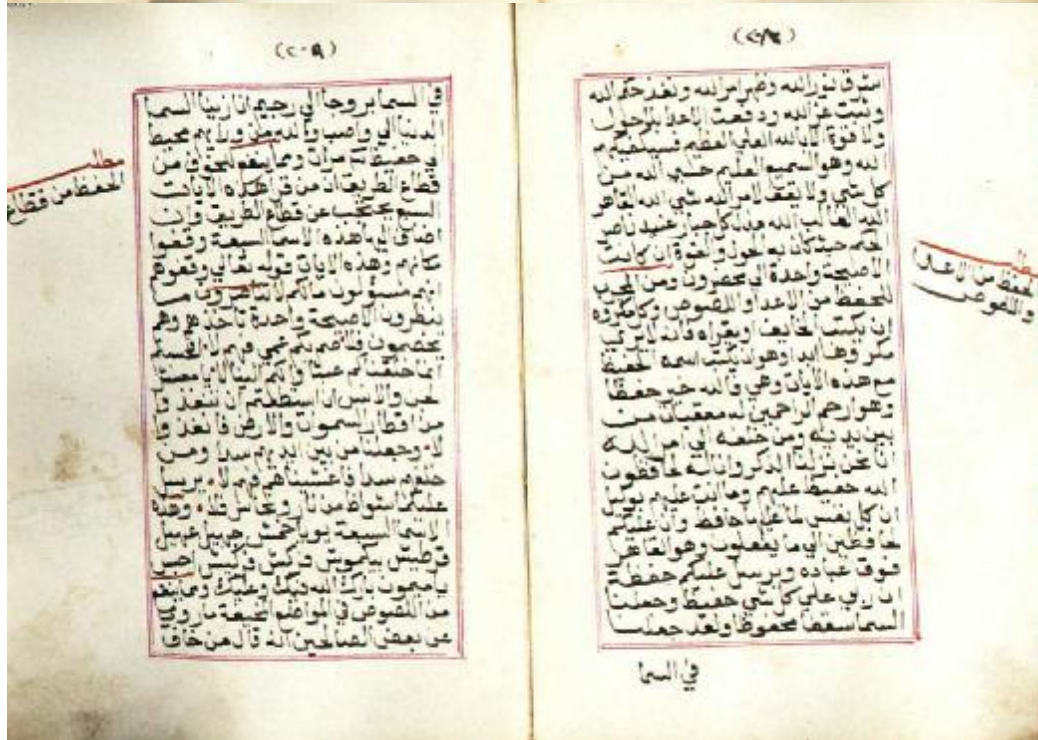 (٢٠٨)
اشرق نور الله وظهر امر الله ونفذ حكم الله
وثبت عز الله ودفعت الاعدا بلا حول
ولا قوة الا بالله العلي العظيم فسيكفيكهم
الله وهو السميع العليم حسبي الله من
كل شي ولا يقف لامر الله شي الله القاهر
الله الغالب الله مذل كل جبار عنيد ناصر
الحكم حيث كان به الحول والقوة ان كانت
الا صيحة واحدة الي محضرون ومن المجرب
للحفظ من الاعدا واللصوص وكل مكروه
ان يكتب الخايف ويقراه فانه لا يري
مكروها ابدا وهو ان يكتب اسمه الحفيظ
مع هذه الايات وهي فالله خير حفظا
وهو ارحم الراحمين له معقبات من
بين يديه ومن خلفه الي امر الله
انا نحن نزلنا الذكر وانا له لحافظون
الله حفيظ عليهم وما انت عليهم بوكيل
ان كل نفس لما عليها حافظ وان عليكم
لحافظين الي ما يفعلون وهو القاهر
فوق عباده ويرسل عليكم حفظة
ان ربي علي كل شي حفيظ وجعلنا
السما سقفا محفوظا ولقد جعلنا
في السما
الحفظ من الاعدا
واللصوص
(٢٠٩)
في السما بروجا الي رجيم انا زينا السما
الدنيا الي واصب والله من ورايهم محيط
الي حفيظ ومما ينفع للخوف من
قطاع الطريق ان من قرا هذه الايات
السبع يحتجب عن قطاع الطريق وان
اضاف اليها هذه الاسما السبعة وقفوا
مكانهم وهذه الايات قوله تعالي وقفوهم
انهم مسؤلون ما لكم لا تناصرون ما
ينظرون الا صيحة واحدة تاخذهم وهم
يخصمون فهم لا افحسبتم
انما خلقناكم عبثا وانكم الينا لا يا معشر
الجن والانس ان استطعتم ان تنفذوا
من اقطار السموات والارض فانفذوا
لا وجعلنا من بين ايديهم سدا ومن
خلفهم سدا فاغشيناهم فهم لا يرسل
عليكما شواظ من نار ونحاس فلا وهذه
الاسما السبعة
احبس
يا ميمون بارك الله فيك وعليك ومما ينفع
من اللصوص في المواضع المخيفة ما روي
عن بعض الصالحين انه قال من خاف
مطلب
الحفظ من قطاع